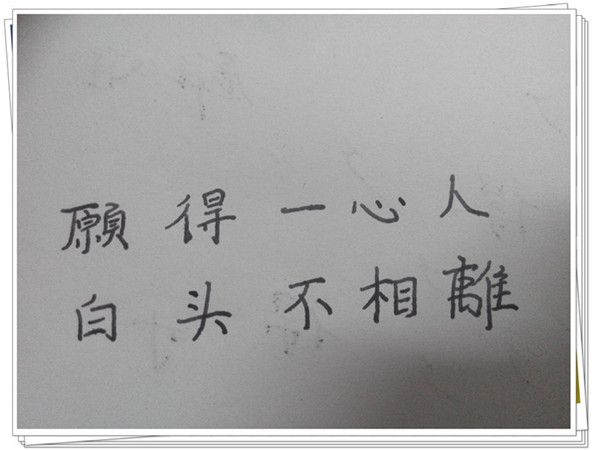 願得一心人
白头不相離